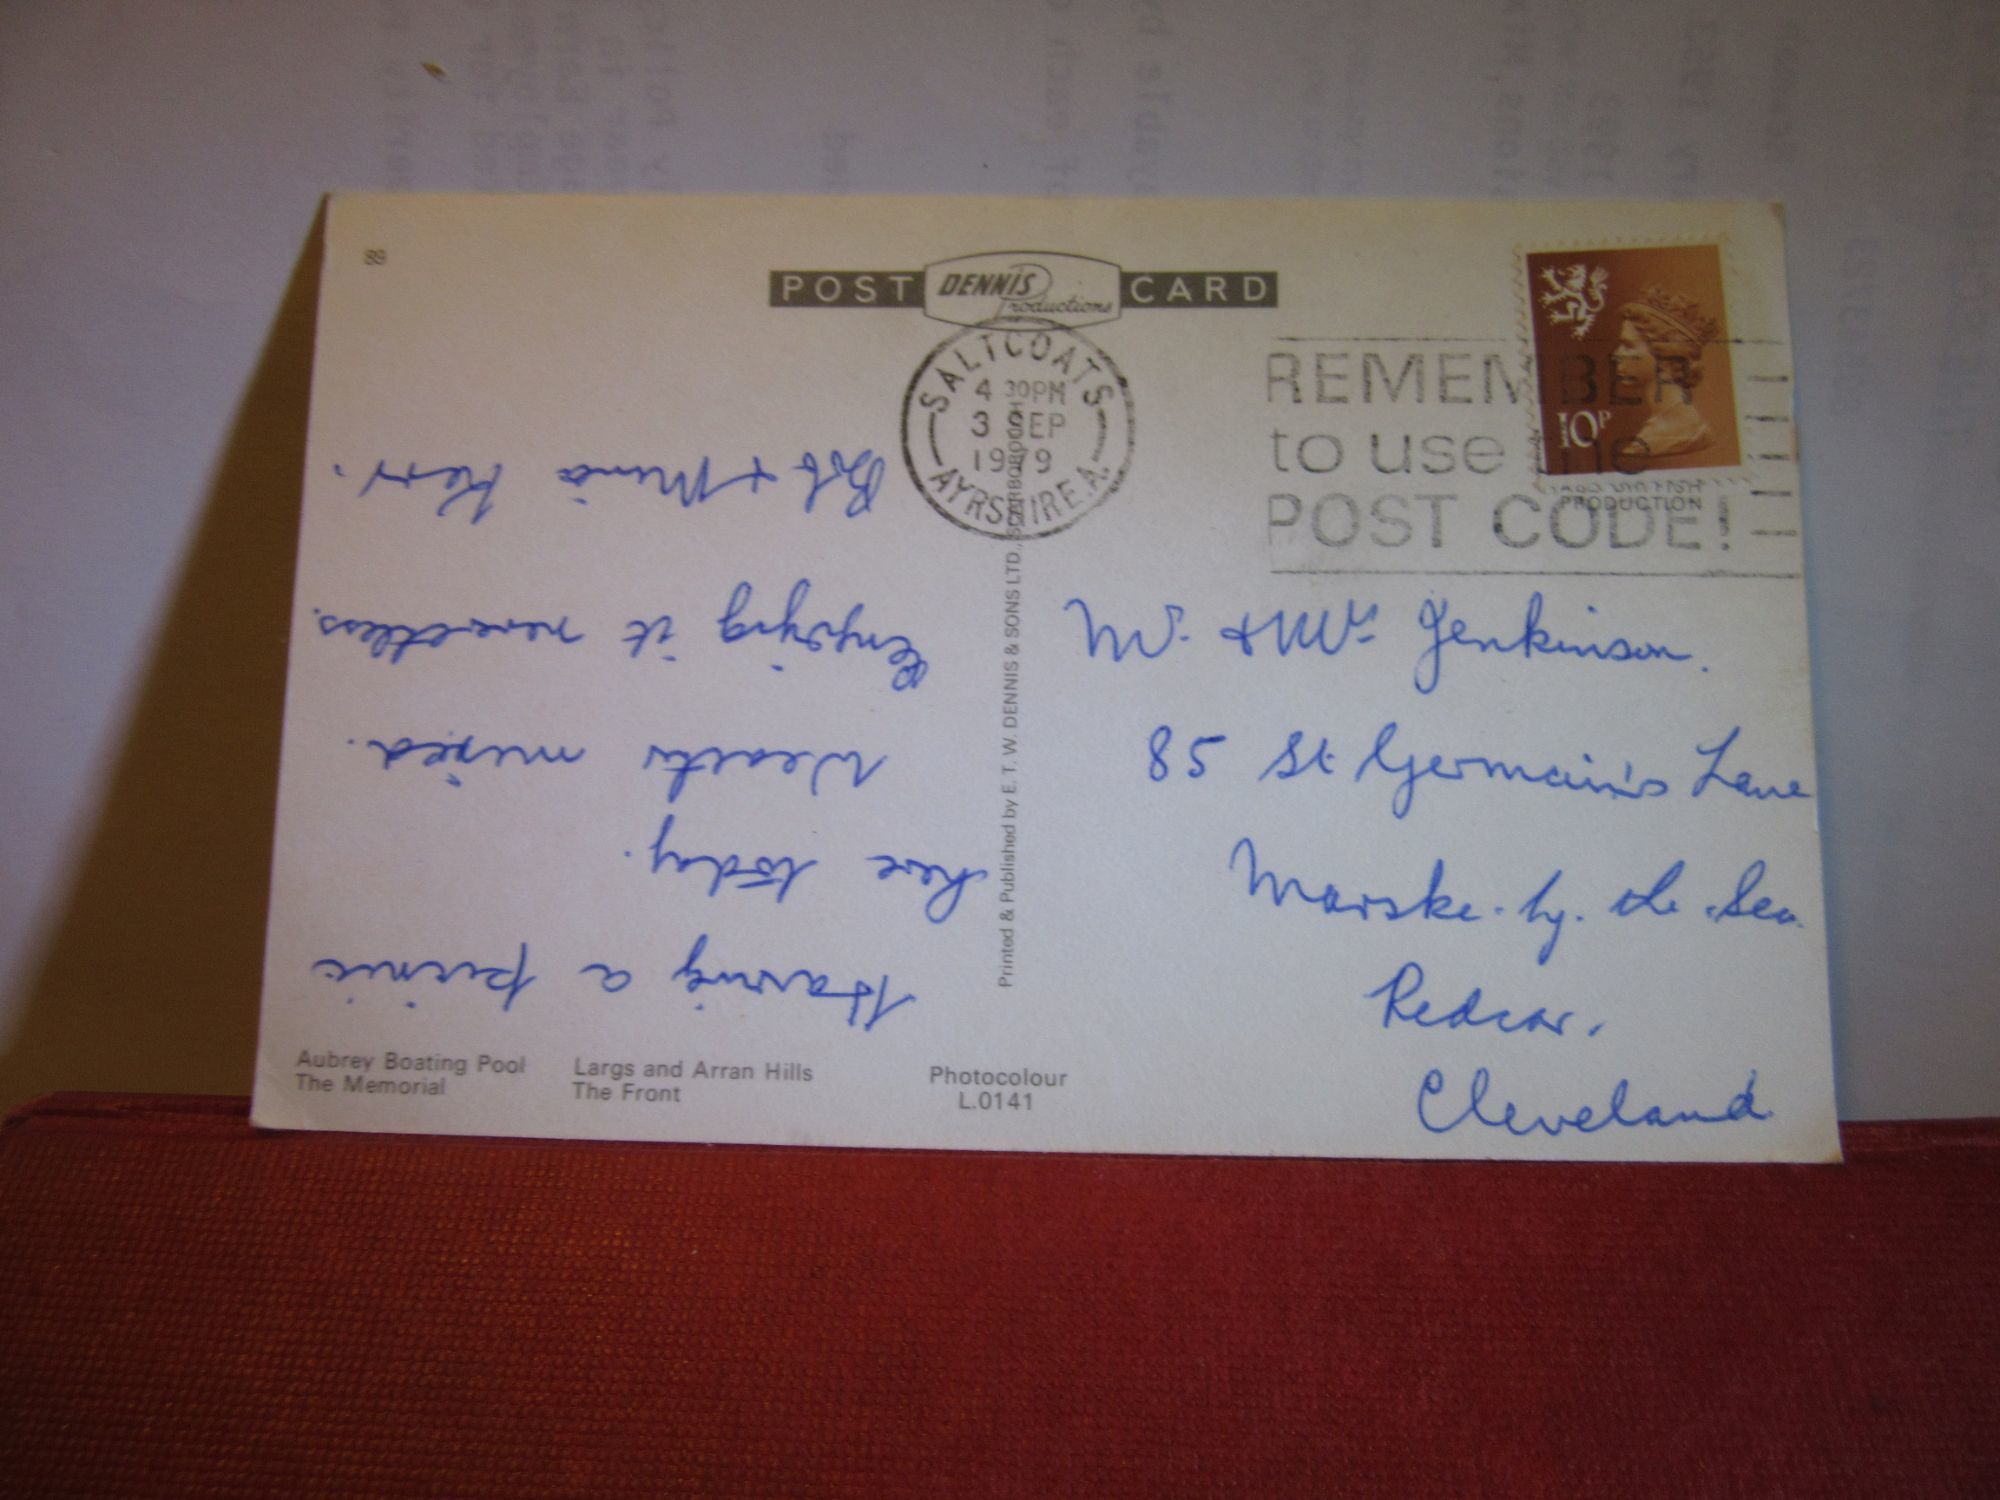 89
POST DENNIS Productions CARD
SALTCOATS
4 30PM
3 SEP
1979
AYRSHIRE.A.
REMEMBER
to use the
POST CODE!
10P
PRODUCTION
Having a picnic
here today.
Weather mixed.
Enjoying it nevertless.
Bob + Mina Kerr.
Printed & Published by E. T. W. DENNIS & SONS LTD., SCARBOROUGH
Mr. & Mrs Jenkinson.
85 St Germain's Lane
Marske. by. the. Sea.
Redcar.
Cleveland
Aubrey Boating Pool
The Memorial
Largs and Arran Hills
The Front
Photocolour
L.0141